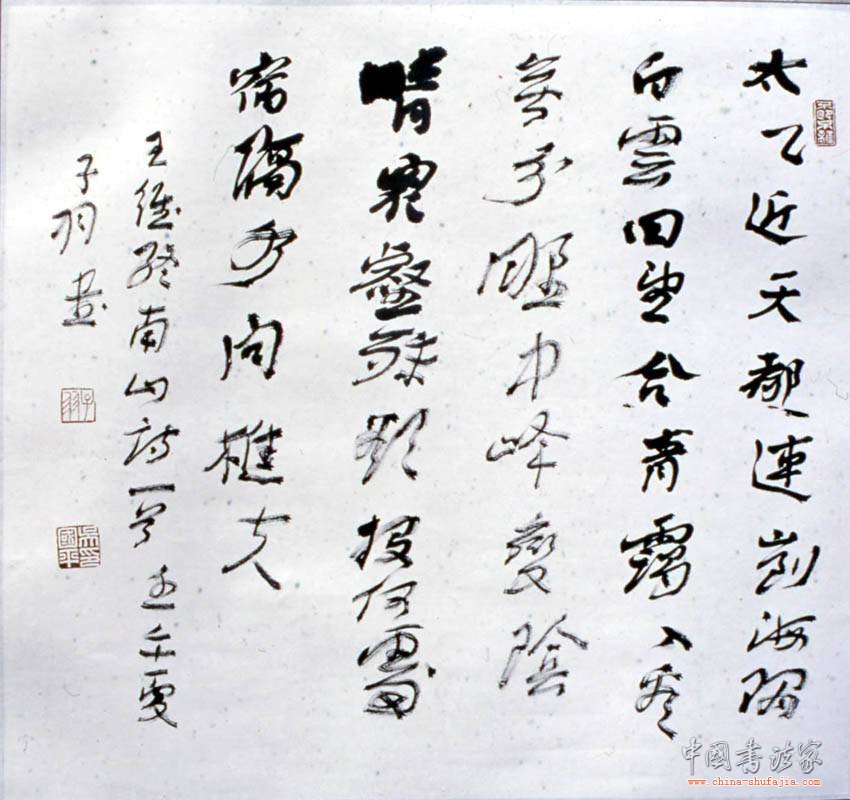 太乙近天都連山到海隅
白雲回望合青靄入看
無分野中峰變陰
晴眾壑殊欲投何處
宿隔水問樵夫
王維終南山詩一首 壬午夏
子羽書
子羽
吳印國平
中國書法家
www.china-shufajia.com